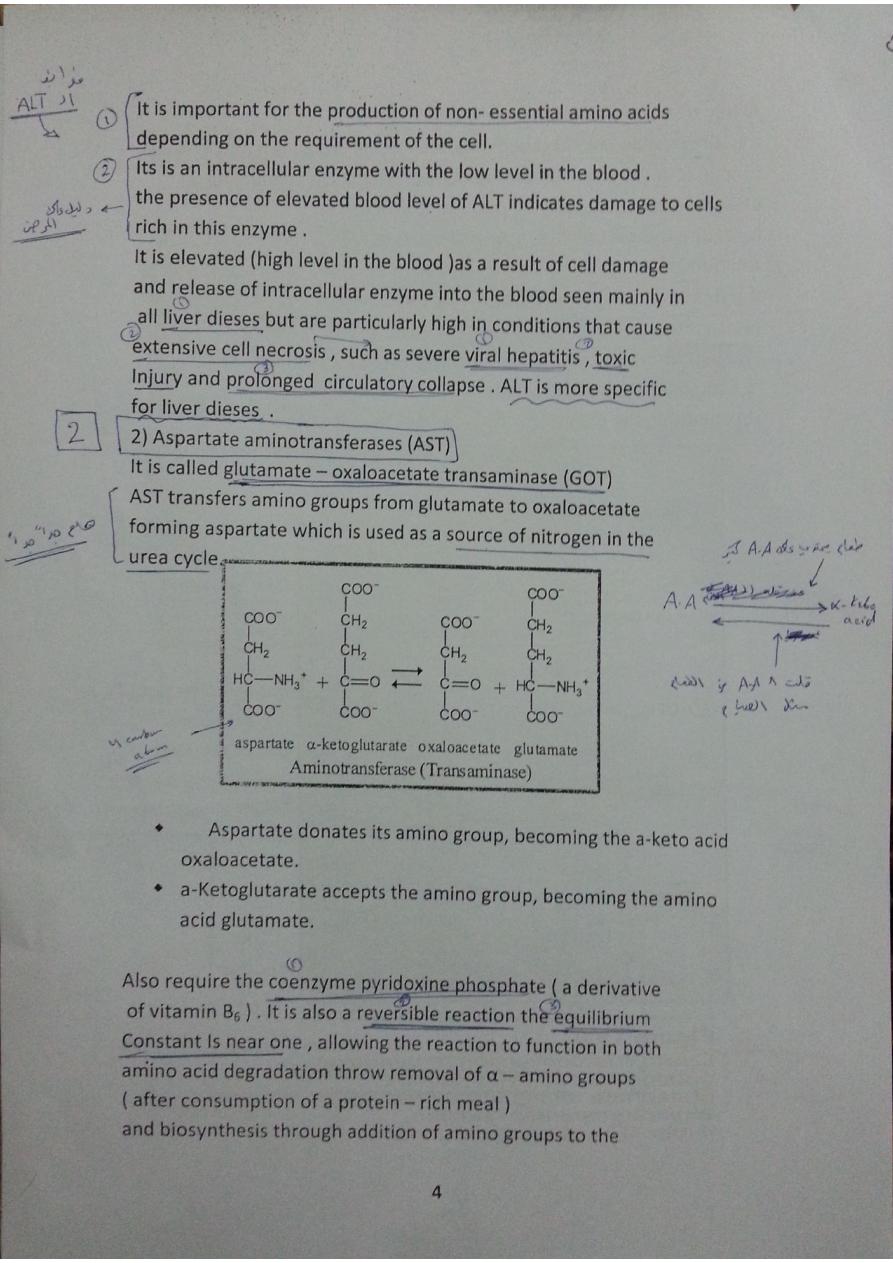 فوائد
ALT ال
① It is important for the production of non- essential amino acids
depending on the requirement of the cell.
② Its is an intracellular enzyme with the low level in the blood .
the presence of elevated blood level of ALT indicates damage to cells
rich in this enzyme .
It is elevated (high level in the blood )as a result of cell damage
and release of intracellular enzyme into the blood seen mainly in
all liver dieses but are particularly high in conditions that cause
extensive cell necrosis , such as severe viral hepatitis , toxic
Injury and prolonged circulatory collapse . ALT is more specific
for liver dieses .
2
2) Aspartate aminotransferases (AST)
It is called glutamate – oxaloacetate transaminase (GOT)
AST transfers amino groups from glutamate to oxaloacetate
forming aspartate which is used as a source of nitrogen in the
urea cycle.
هام جداً جداً
A.A
α-keto
acid
COO⁻ COO⁻
COO⁻ CH₂ COO⁻ CH₂
CH₂ CH₂ CH₂ CH₂
HC—NH₃⁺ + C=O ⇌ C=O + HC—NH₃⁺
COO⁻ COO⁻ COO⁻ COO⁻
4 carbon
atom
aspartate α-ketoglutarate oxaloacetate glutamate
Aminotransferase (Transaminase)
• Aspartate donates its amino group, becoming the a-keto acid
oxaloacetate.
• a-Ketoglutarate accepts the amino group, becoming the amino
acid glutamate.
Also require the coenzyme pyridoxine phosphate ( a derivative
of vitamin B₆ ) . It is also a reversible reaction the equilibrium
Constant Is near one , allowing the reaction to function in both
amino acid degradation throw removal of α – amino groups
( after consumption of a protein – rich meal )
and biosynthesis through addition of amino groups to the
4